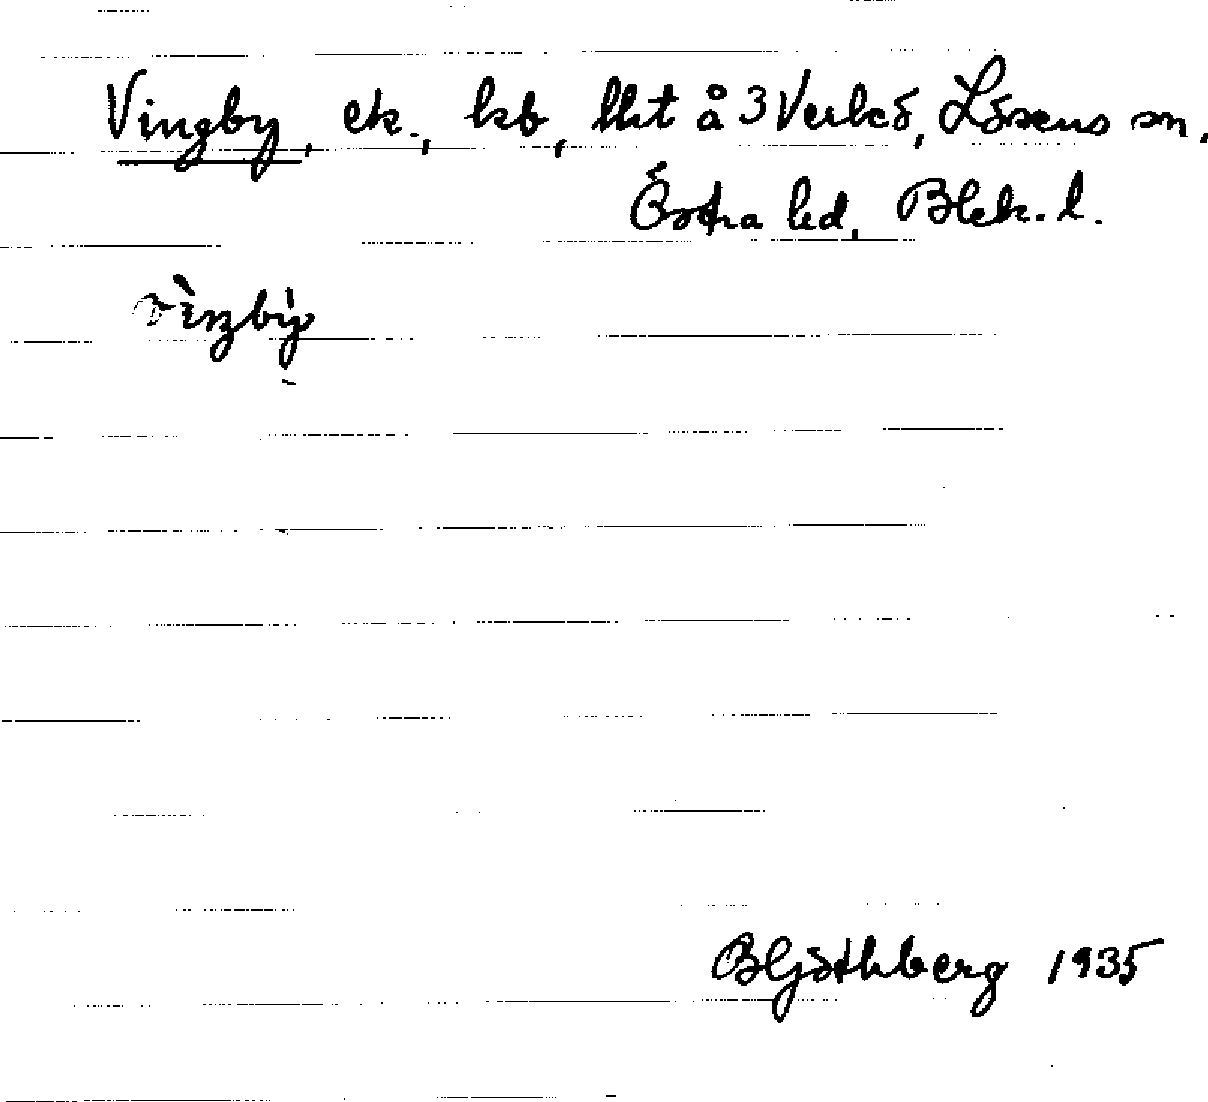 Vingby, ek., kb, lht å 3 Verkö, Lösens sn,
Östra hd, Blek. l.
B Göthberg 1935